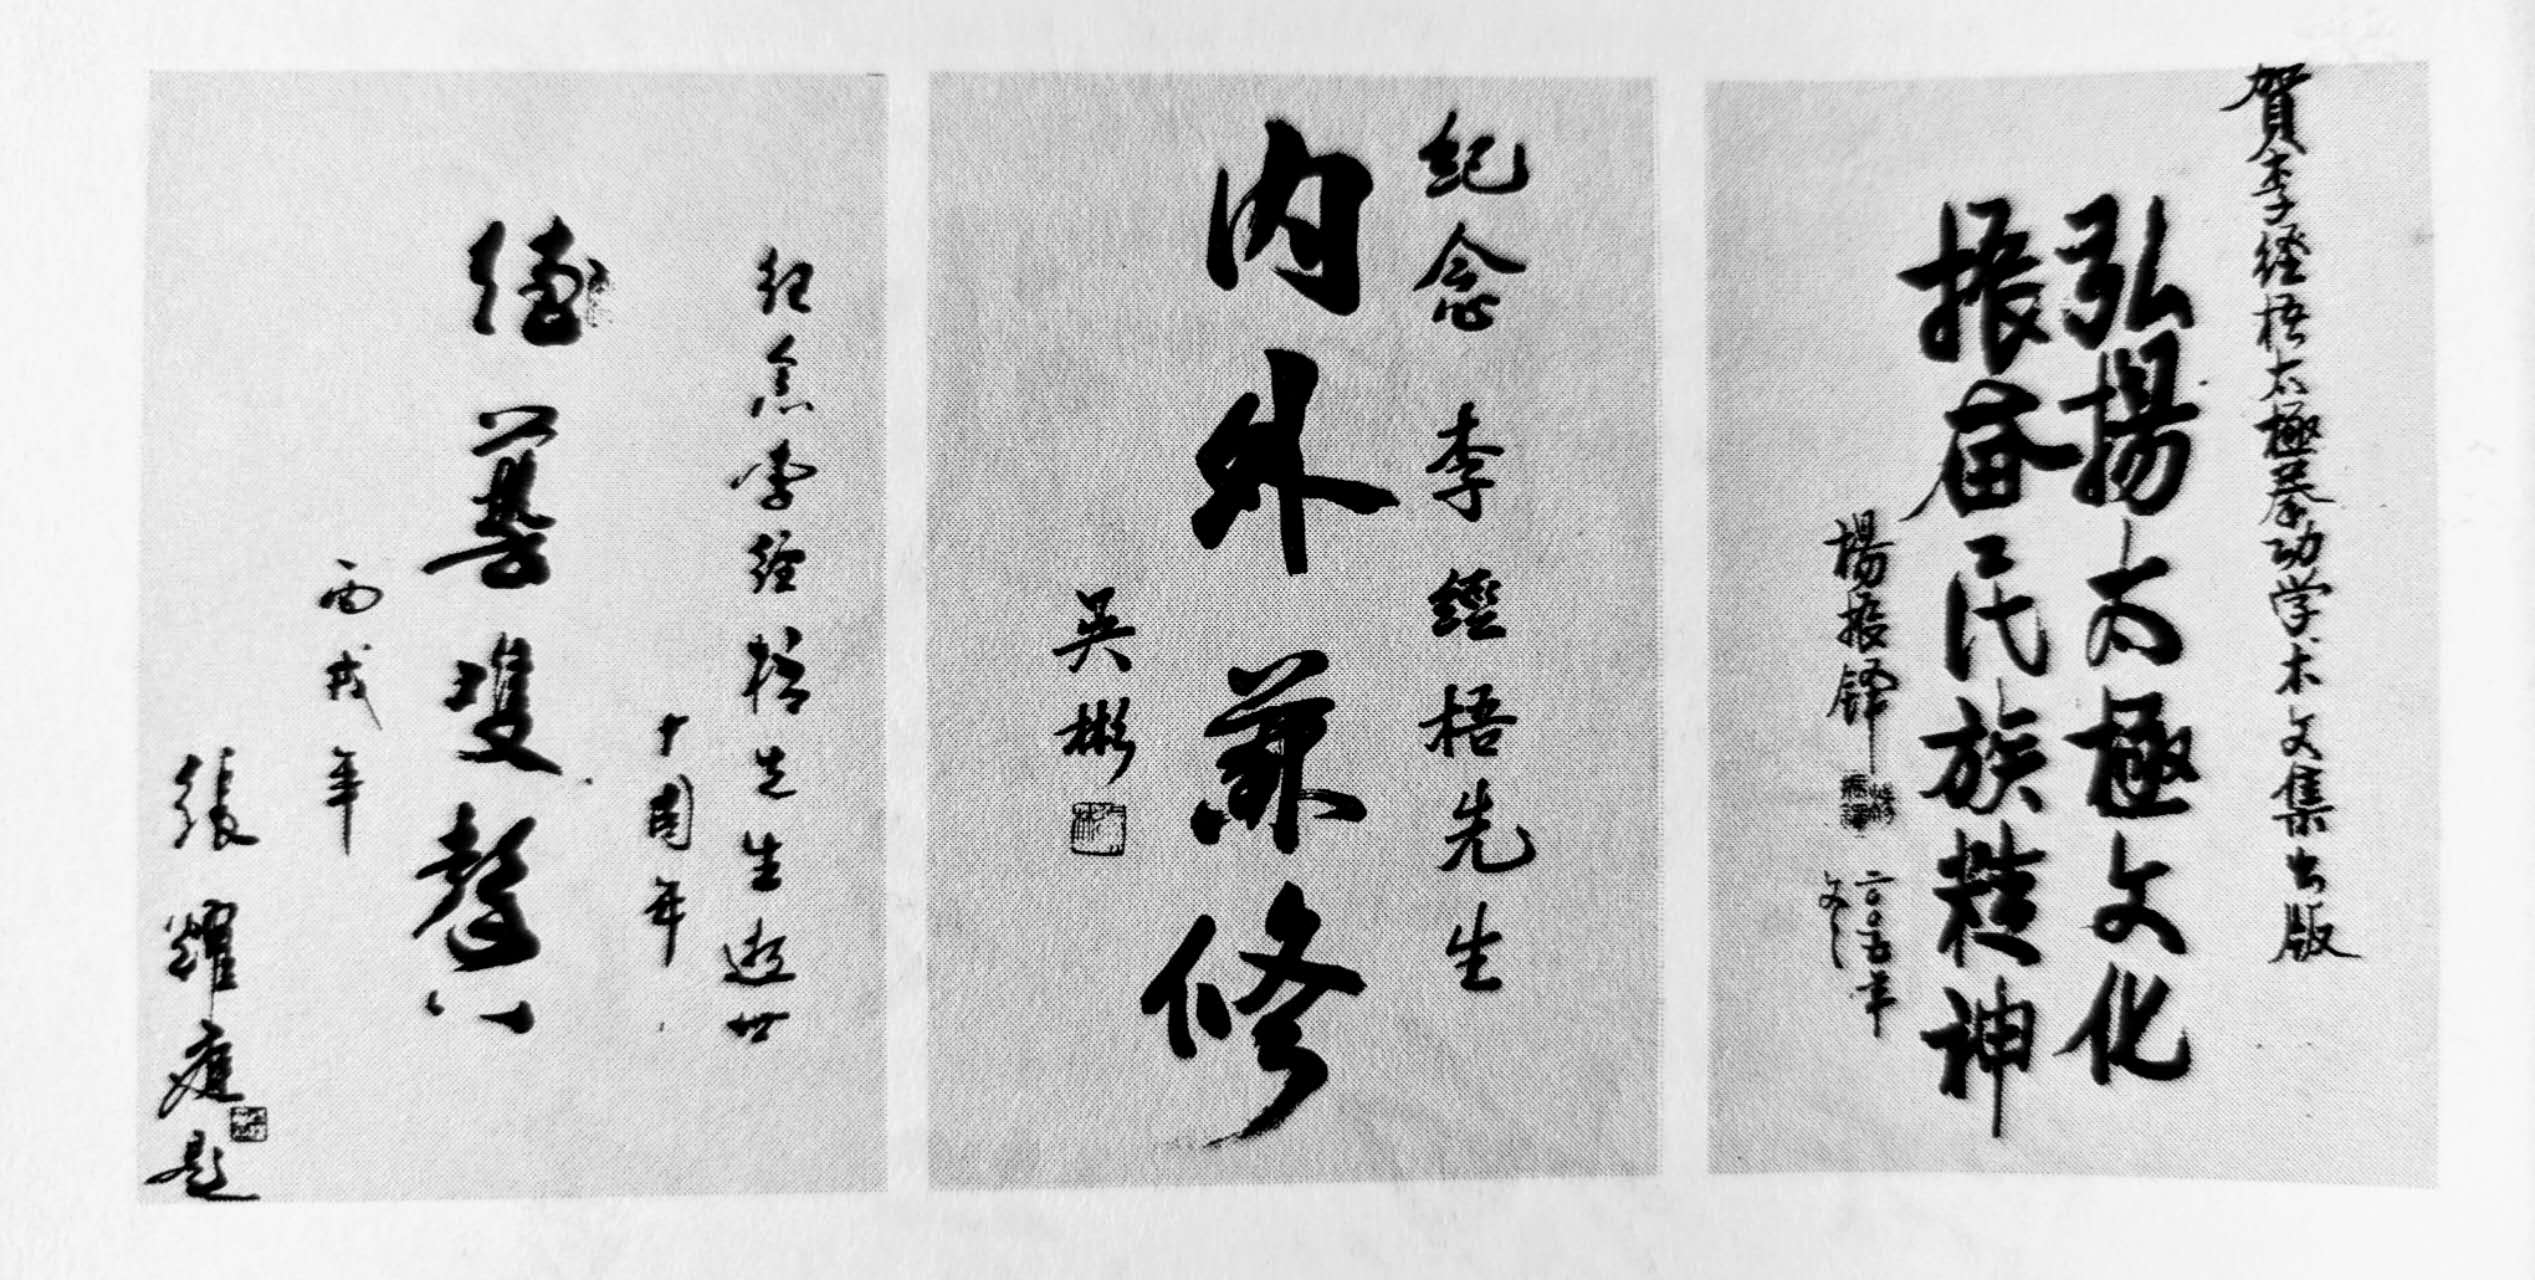 賀李経梧太極拳功学术文集出版
弘揚太極文化
振奋民族精神
楊振鐸
二〇〇五年
纪念李經梧先生
内外兼修
吴彬
纪念李经梧先生逝世
十周年
德藝雙馨
丙戌年
張耀庭题